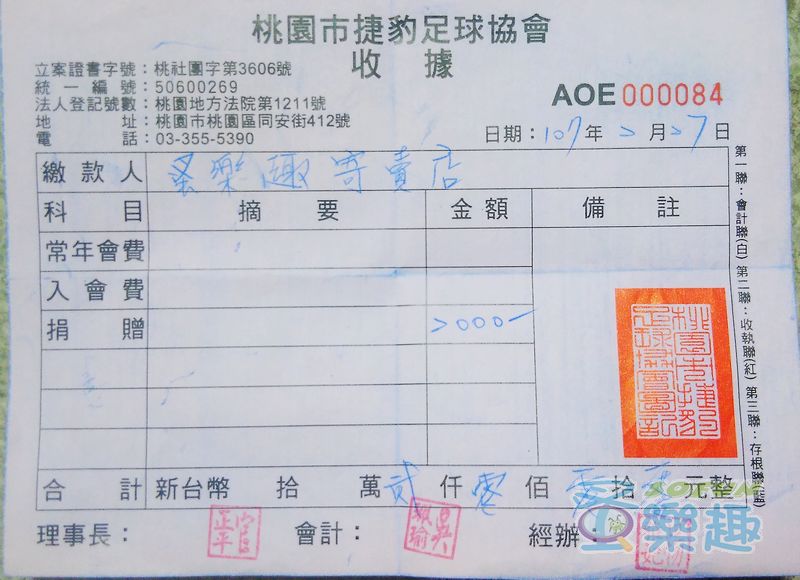 桃園市捷豹足球協會
收 據
立案證書字號：桃社團字第3606號
統一編號：50600269
法人登記號數：桃園地方法院第1211號
地　　址：桃園市桃園區同安街412號
電　　話：03-355-5390
AOE 000084
日期：107年2月27日
繳款人 蚤樂趣寄賣店
科目 摘要 金額 備註
常年會費
入會費
捐贈 2000-
合計 新台幣 拾 萬 貳 仟 零 佰 零 拾 零 元整
理事長： 會計： 經辦：
第一聯：會計聯(白) 第二聯：收執聯(紅) 第三聯：存根聯(藍)
樂趣